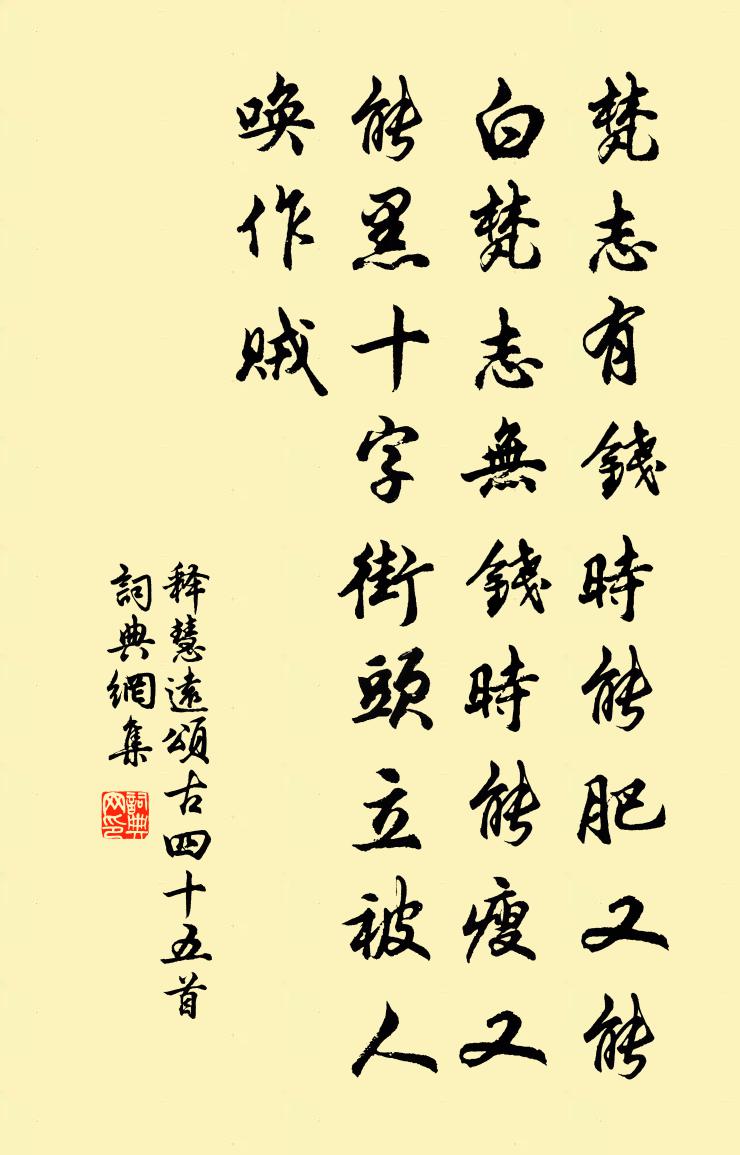 梵志有錢時能肥又能
白梵志無錢時能瘦又
能黑十字街頭立被人
喚作賊
释慧遠頌古四十五首
詞典網集
詞典网印